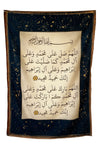 بسم الله الرحمن الرحيم
اللهم صل على محمد وعلى
آل محمد كما صليت على
إبراهيم وعلى آل إبراهيم
إنك حميد مجيد
اللهم بارك على محمد وعلى
آل محمد كما باركت على
إبراهيم وعلى آل إبراهيم
إنك حميد مجيد